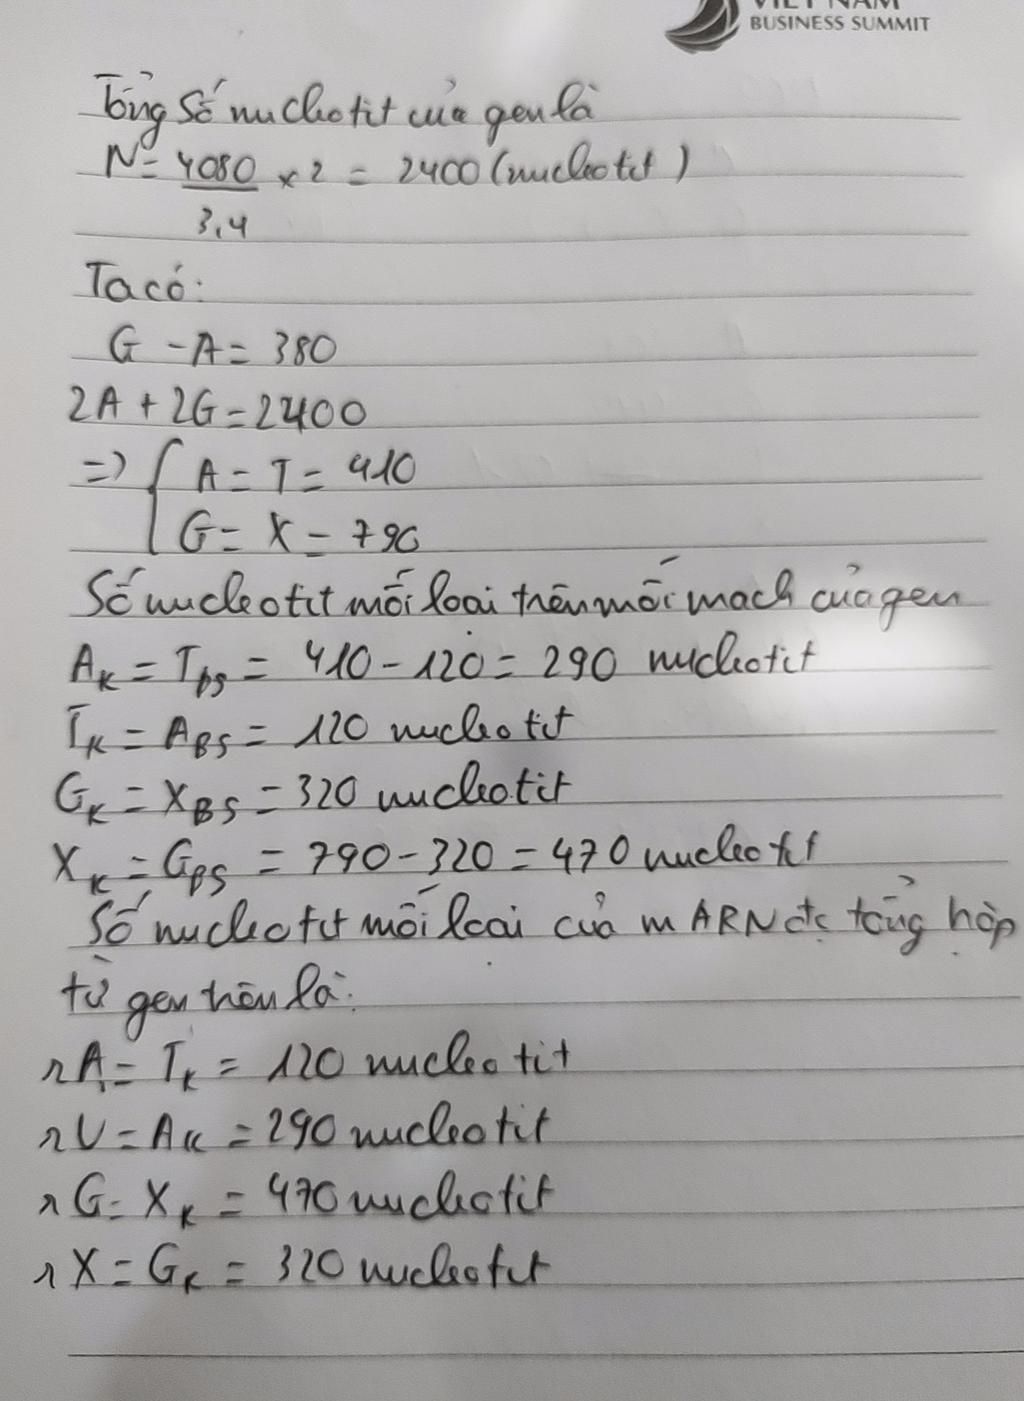 VIET NAM
BUSINESS SUMMIT
Tổng số nucleotit của gen là
N = 4080 / 3,4 × 2 = 2400 (nucleotit)
Ta có:
G - A = 380
2A + 2G = 2400
=> { A = T = 410
G = X = 790
Số nucleotit mỗi loại trên mỗi mạch của gen
AK = TBS = 410 - 120 = 290 nucleotit
TK = ABS = 120 nucleotit
GK = XBS = 320 nucleotit
XK = GBS = 790 - 320 = 470 nucleotit
Số nucleotit mỗi loại của mARN đc tổng hợp
từ gen trên là:
rA = TK = 120 nucleotit
rU = AK = 290 nucleotit
rG = XK = 470 nucleotit
rX = GK = 320 nucleotit